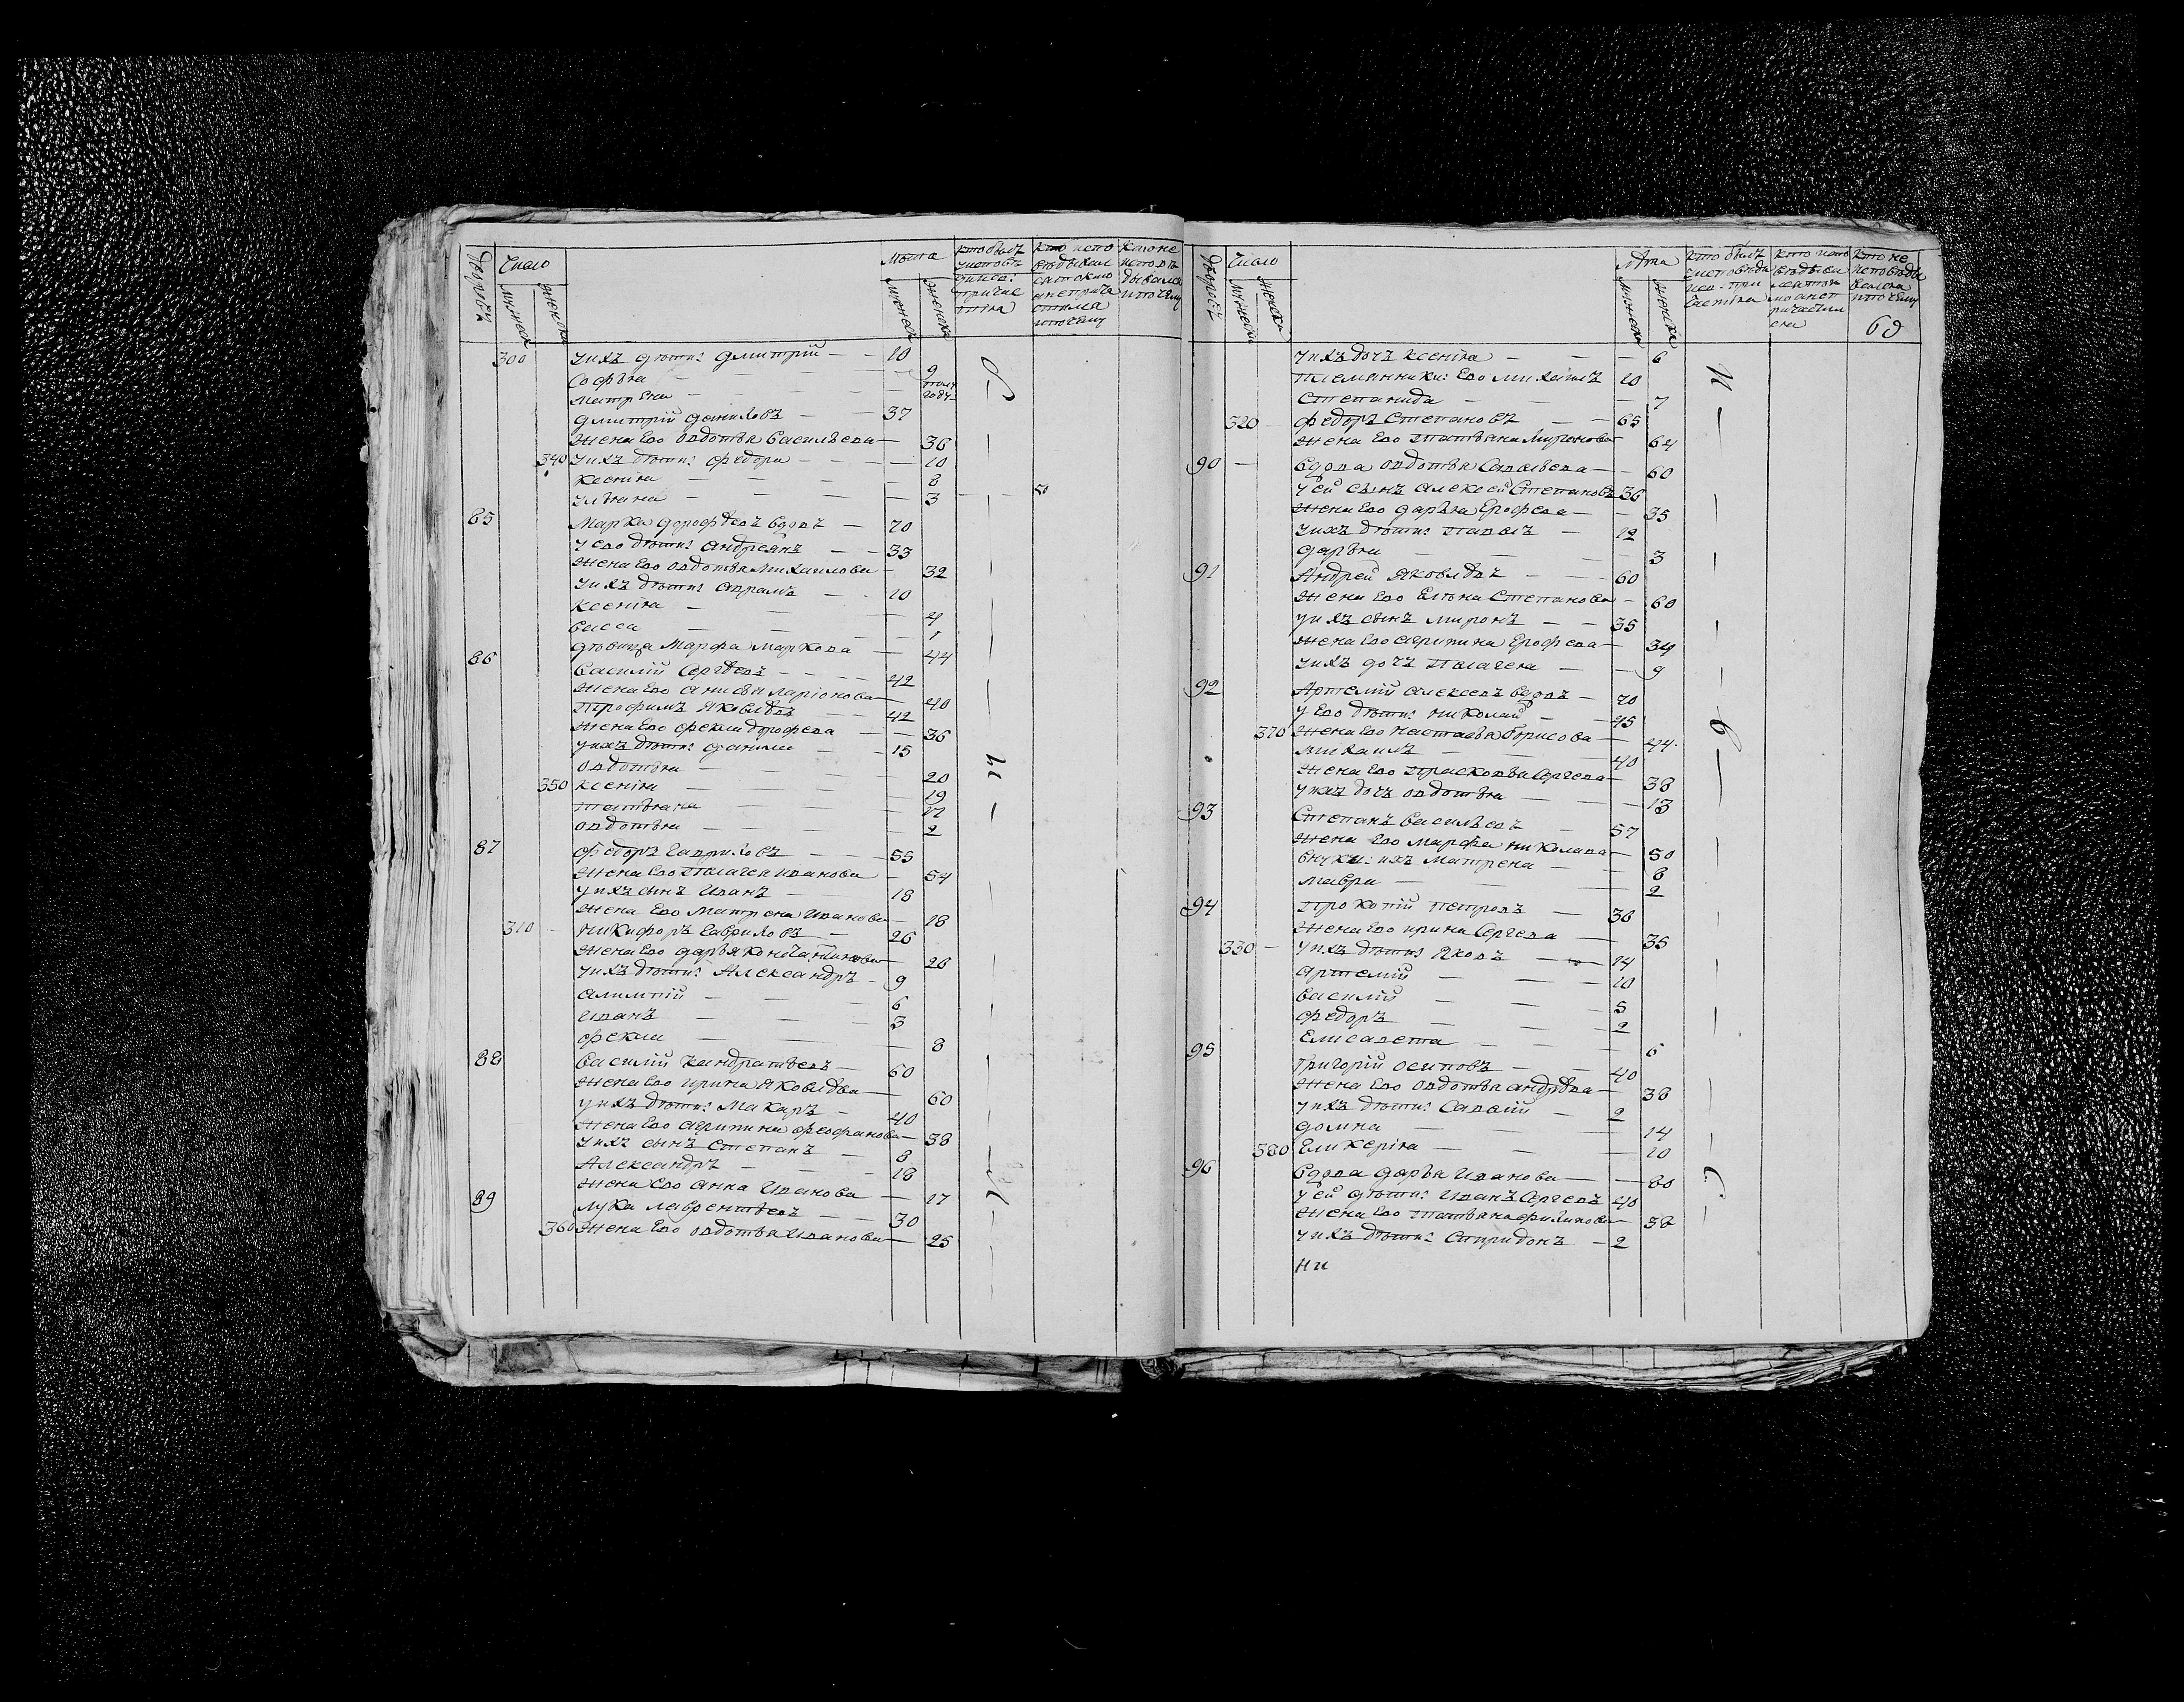 Дворовъ Число мужеска женска Лѣта мужеска женска
300 у ихъ дѣти: Дмитрій — 10
Софья — 9
Матрена — полугоду
Дмитрій Даниловъ — 37
жена Ево Овдотья Васильева — 36
340 у ихъ дѣти: Федора — 10
Ксенія — 8
Ульяна — 3
85 Марка Дорофѣевъ вдовъ — 70
у ево дѣти: Андреянъ — 33
жена Ево Овдотья Михаилова — 32
у ихъ дѣти: Аврамъ — 10
Ксенія — 4
Васса — 1
дѣвица Марфа Маркова — 44
86 Василій Сергѣевъ — 42
жена Ево Анисья Ларіонова — 40
Трофимъ Яковлѣвъ — 42
жена Ево Фекла Дорофеева — 36
у ихъ дѣти: Данила — 15
Овдотья — 20
350 Ксенія — 19
Татьяна — 17
Овдотья — 2
87 Федоръ Гавриловъ — 55
жена Ево Пелагея Иванова — 54
у ихъ сынъ Иванъ — 18
жена Ево Матрена Иванова — 18
310 Никифоръ Гавриловъ — 26
жена Ево Дарья Константинова — 26
у ихъ дѣти: Александръ — 9
Алимпій — 6
Иванъ — 3
Фекла — 8
88 Василій Кандратьевъ — 60
жена Ево Ирина Яковлѣва — 60
у ихъ дѣти: Макаръ — 40
жена Ево Агрипина Феофанова — 38
у ихъ сынъ Степанъ — 8
Александръ — 18
жена Ево Анна Иванова — 17
89 Лука Лаврентьевъ — 30
360 жена Ево Овдотья Иванова — 25
Дворовъ Число мужеска женска Лѣта мужеска женска
69
у ихъ дочь Ксенія — 6
племянники: Ево Михаилъ 10
Степанида — 7
320 Федоръ Степановъ — 65
жена Ево Татьяна Миронова 64
90 Вдова Овдотья Савельева — 60
у ей сынъ Алексей Степановъ 36
жена Ево Дарья Ерофеева — 35
у ихъ дѣти: Павелъ — 12
Дарья — 3
91 Андрей Яковлѣвъ — 60
жена Ево Елена Степанова — 60
у ихъ сынъ Миронъ — 35
жена Ево Агрипина Ерофеева — 34
у ихъ дочь Пелагея — 9
92 Артемій Алексеевъ вдовъ — 70
у Ево дѣти: Николай — 45
370 жена Ево Настасья Борисова — 44
Михаилъ — 40
жена Ево Прасковья Сергеева — 38
у ихъ дочь Овдотья — 13
93 Степанъ Васильевъ — 57
жена Ево Марфа Николаева — 50
внуки: ихъ Матрена — 8
Мавра — 2
94 Прокопій Петровъ — 36
жена Ево Ирина Сергеева — 35
330 у ихъ дѣти: Яковъ — 14
Артемій — 10
Василій — 5
Федоръ — 2
Елисавета — 6
95 Григорій Осиповъ — 40
жена Ево Овдотья Андрѣева — 38
у ихъ дѣти: Савелій — 2
Домна — 14
380 Гликерія — 10
96 Вдова Дарья Иванова — 60
у ей дѣти: Иванъ Сергеевъ 40
жена Ево Татьяна Филипова 38
у ихъ дѣти: Спиридонъ — 2
ни